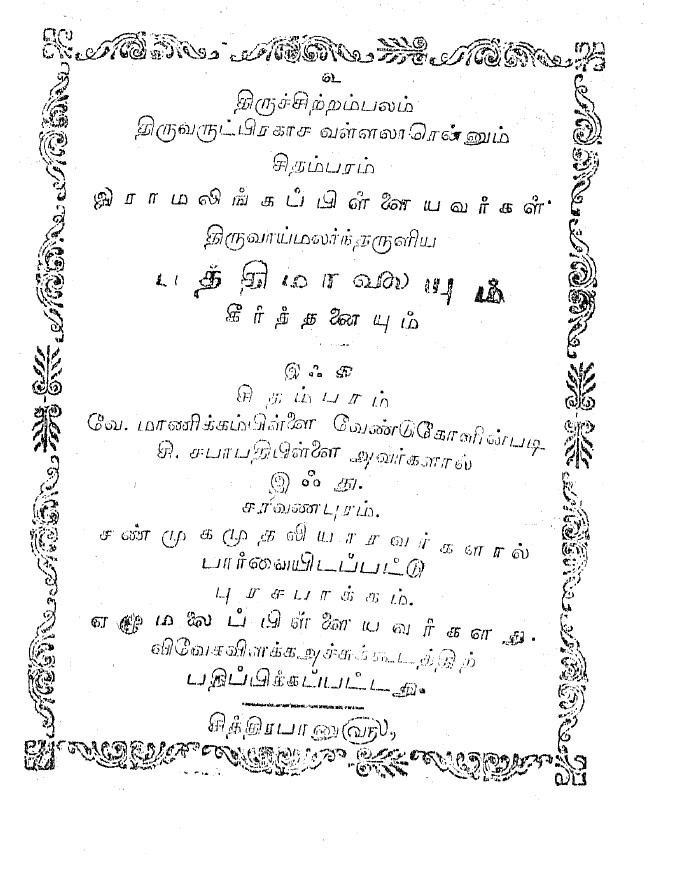 உ
திருச்சிற்றம்பலம்
திருவருட்பிரகாச வள்ளலாரென்னும்
சிதம்பரம்
இராமலிங்கப்பிள்ளையவர்கள்
திருவாய்மலர்ந்தருளிய
பத்திமாலையும்
கீர்த்தனையும்
இஃது
சிதம்பரம்
வே. மாணிக்கம்பிள்ளை வேண்டுகோளின்படி
சி. சபாபதிபிள்ளை அவர்களால்
இஃது.
சரவணபுரம்.
சண்முகமுதலியாரவர்களால்
பார்வையிடப்பட்டு
புரசபாக்கம்.
ஏழுமலைப்பிள்ளையவர்களது.
விவேகவிளக்கஅச்சுக்கூடத்திற்
பதிப்பிக்கப்பட்டது.
சித்திரபானு௵,